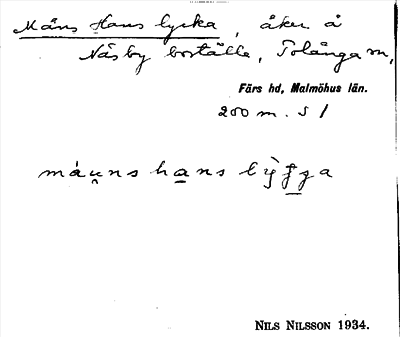 Måns Hans lycka, åker å
Näsby boställe, Tolånga sn,
Färs hd, Malmöhus län.
200 m. S 1
máu̯ns ha̲ns lỳg̲ga
NILS NILSSON 1934.